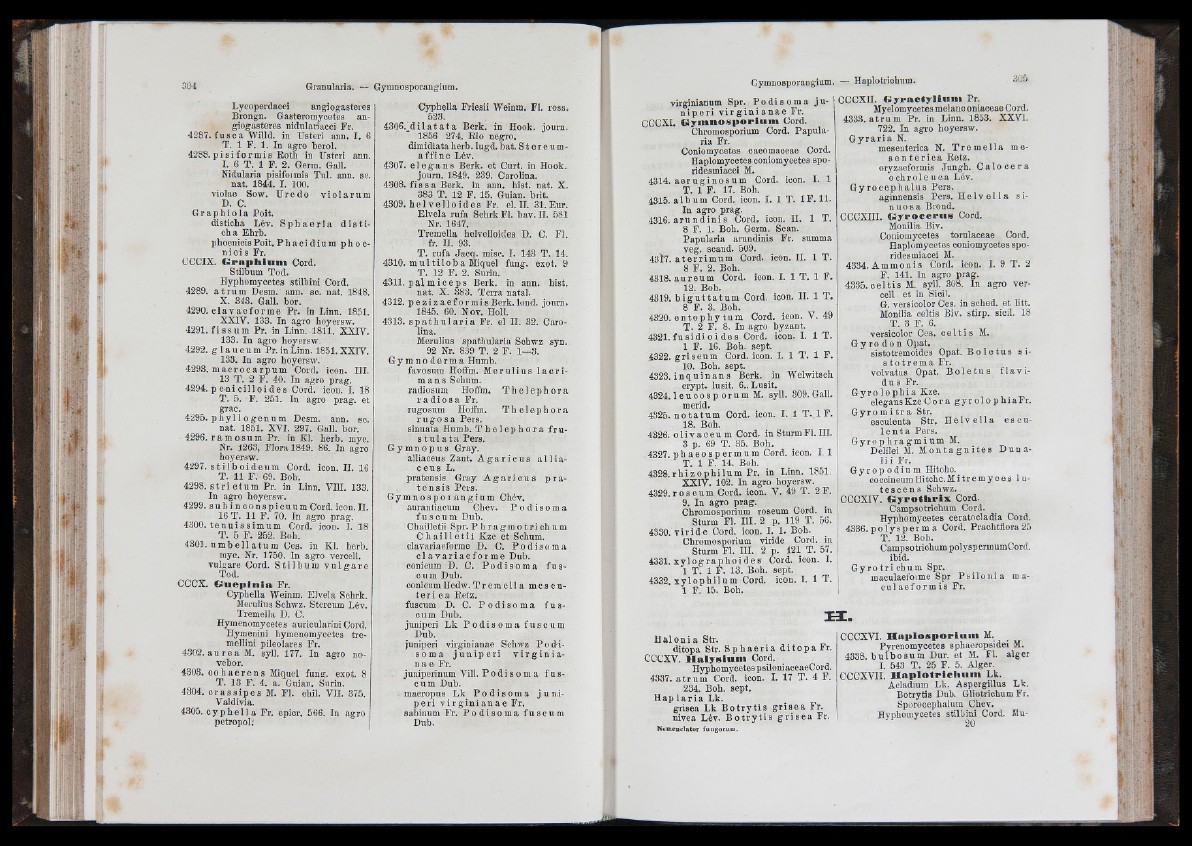 304 Granularia. — Gymnosporangium.
Lycoperdacei angiogasteres
Brongn. Gasteromycetes an-
giogasteres nidulariacei Fr.
4287. fusca Willd. in Usteri ann. I. 6
T. 1 F. 1. In agro berol.
4288. pisiformis Roth in Usteri ann.
I. 6 T. 1 F. 2. Germ. Gall.
Nidularia pisiformis Tul. ann. sc.
nat. 1844. I. 100.
violae Sow. Uredo violarum
D. C.
Graphiola Poit.
disticha Lév. Sphaeria disti-
cha Ehrb.
phoenicis Poit. Phacidium phoe-
nicis Fr.
CCCIX. Graphium Cord.
Stilbum Tod.
Hyphomycetes stilbini Cord.
4289. atrum Desm. ann. sc. nat. 1848.
X. 343. Gall. bor.
4290. clavaeforme Pr. in Linn. 1851.
XXIV. 133. In agro hoyersw.
4291. fissum Pr. in Linn. 1811. XXIV.
133. In agro hoyersw.
4292. glaucum Pr. in Linn. 1851. XXIV.
133. In agro hoyersw.
4293. macrocarpum Cord. icon. III.
13 T. 2 F. 40. In agro prag.
4294. penicilloides Cord. icon. I. 18
T. 5. F. 251. In agro prag. et
graec.
4295. phyllogenum Desm. ann. sc.
nat. 1851. XVI. 297. Gall. bor.
4296. ramosum Pr. in Kl. herb. myc.
Nr. 1263, Flora 1849. 86. In agro
hoyersw.
4297. stilboideum Cord. icon. II. 16
T. 11 F. 69. Boh.
4298. strictum Pr. in Linn. VIII. 133.
In agro hoyersw.
4299. subinconspicuum Cord. icon. II.
16 T. 11 F. 70. In agro prag.
4300. tenuissimum Cord. icon. I. 18
T. 5 F. 252. Boh.
4301. umbellatum Ces. in Kl. herb.
myc. Nr. 1750. In agro vercell.
vulgare Cord. Stilbum vulgare
Tod.
CCCX. Guepinia Fr.
Cyphella Weinm. Elvela Schrk.
Merulius Schwz. Stereum Lév.
Tremella D. C.
Hymenomycetes auricularini Cord.
Hymenini hymenomycetes tre-
mellini pileolares Fr.
4302. aurea M. syll. 177. In agro no-
vebor.
4303. cohaerens Miquel fung. exot. 8
T. 13 F. 4. a. Guian. Surin.
4304. crassipes M. Fl. chil. VII. 375.
Valdivia.
4305. cyphella Fr. epicr. 566. In agro
petropol.
Cyphella Friesii Weinm. Fl. ross.
523.
4306. dilatata Berk. in Hook. journ.
1856 274. Rio negro.
dimidiata herb. lugd. bat. Stereum
affine Lév.
4307. elegans Berk. et Curt. in Hook.
journ. 1849. 239. Carolina.
4308. fissa Berk. in ann. hist. nat. X.
383 T. 12 F. 15. Guian. brit.
4309. helvelloides Fr. el. II. 31. Eur.
Elvela rufa Schrk Fl. bav. II. 581
Nr. 1647.
Tremella helvelloides D. C. Fl.
fr. II. 93.
T. rufa Jacq. misc. I. 143 T. 14.
4310. multiloba Miquel fung. exot. 9
T. 12 F. 2. Surin.
4311. palmiceps Berk. in ann. hist.
nat. X. 383. Terra natal.
4312. pezizaeformis Berk. lond. journ.
1845. 60. Nov. Holl.
4313. spathularia Fr. el II. 32. Caro-
lina.
Merulius spathularia Schwz syn.
92 Nr. 839 T. 2 F. 1—3.
Gymnoderma Humb.
favosum Hoffm. Merulius lacri-
mans Schum.
radiosum Hoffm. Thelephora
radiosa Fr.
rugosum Hoffm. Thelephora
rugosa Pers.
sinuata Humb. Thelephora fru-
stulata Pers.
Gymnopus Gray.
alliaceus Zant. Agaricus allia-
ceus L.
pratensis Gray Agaricus pra-
tensis Pers.
Gymnosporangium Chév.
aurantiacum Chev. Podisoma
fuscum Dub.
Chailletii Spr. Phragmotrichum
Chailletii Kze et Schum.
clavariaeforme D. C. Podisoma
clavariaeforme Dub.
conicum D. C. Podisoma fus-
cum Dub.
conicum Hedw. Tremella mesen-
terica Retz.
fuscum D. C. Podisoma fus-
cum Dub.
juniperi Lk Podisoma fuscum
Dub.
juniperi virginianae Schwz Podi-
soma juniperi virginia-
nae Fr.
juniperinum Vill. Podisoma fus-
cum Dub.
macropus Lk Podisoma juni-
peri virginianae Fr.
sabinum Fr. Podisoma fuscum
Dub.
Gymnosporangium. — Haplotrichum. 305
virginianum Spr. Podisoma ju-
niperi virginianae Fr.
CCCXI. Gymnosporium Cord.
Chromosporium Cord. Papula-
ria Fr.
Coniomycetes caeomaceae Cord.
Haplomycetes coniomycetes spo-
ridesmiacei M.
4314. aeruginosum Cord. icon. I. 1
T. 1 F. 17. Boh.
4315. album Cord. icon. I. 1 T. 1 F. 11.
In agro prag.
4316. arundinis Cord. icon. II. 1 T.
8 F. 1. Boh. Germ. Scan.
Papularia arundinis Fr. summa
veg. scand. 509.
4317. aterrimum Cord. icon. II. 1 T.
8 F. 2. Boh.
4318. aureum Cord. icon. I. 1 T. 1 F.
12. Boh.
4319. biguttatum Cord. icon. II. 1 T.
8 F. 3. Boh.
4320. entophytum Cord. icon. V. 49
T. 2 F. 8. In agro byzant.
4321. fusidioides Cord. icon. I. 1 T.
1 F. 16. Boh. sept.
4322. griseum Cord. icon. I. 1 T. 1 F.
10. Boh. sept.
4323. inquinans Berk. in Welwitsch
crypt. lusit. 6. Lusit.
4324. leucosporum M. syll. 309. Gall.
merid.
4325. notatum Cord. icon. I. 1 T. 1 F.
18. Boh.
4326. olivaceum Cord. in Sturm Fl. III.
3 p. 69 T. 35. Boh.
4327. phaeospermum Cord. icon. I. 1
T. 1 F. 14. Boh.
4328. rhizophilum Pr. in Linn. 1851.
XXIV. 102. In agro hoyersw.
4329. roseum Cord. icon. V. 49 T. 2 F.
9. In agro prag.
Chromosporium roseum Cord. in
Sturm Fl. III. 2 p. 119 T. 56.
4330. viride Cord. icon. I. 1. Boh.
Chromosporium viride Cord. in
Sturm Fl. III. 2 p. 121 T. 57.
4331. xylographoides Cord. icon. I.
1 T. 1 F. 13. Boh. sept.
4332. xylophilum Cord. icon. I. 1 T.
1 F. 15. Boh.
CCCXII. Gyractylium Pr.
Myelomycetes melanconiaceae Cord.
4333. atrum Pr. in Linn. 1853. XXVI.
722. In agro hoyersw.
Gyraria N.
mesenterica N. Tremella me-
senterica Retz.
oryzaeformis Jungh. Calocera
ochroleuca Lév.
Gyrocephalus Pers.
aginnensis Pers. Helvella si-
nuosa Brond.
CCCXIII. Gyrocerus Cord.
Monilia Biv.
Coniomycetes torulaceae Cord.
Haplomycetes coniomycetes spo-
ridesmiacei M.
4334. Ammonis Cord. icon. I. 9 T. 2
F. 141. In agro prag.
4335. celtis M. syll. 308. In agro ver-
cell et in Sicil.
G. versicolor Ces. in sched. et litt.
Monilia celtis Biv. stirp. sicil. 18
T. 3 F. 6.
versicolor Ces. celtis M.
Gyrodon Opat.
sistotremoides Opat. Boletus si-
stotrema Fr.
volvatus Opat. Boletus flavi-
dus Fr.
Gyrolophia Kze.
elegans Kze Cora gyrolophia Fr.
Gyromitra Str.
esculenta Str. Helvella escu-
lenta Pers.
Gyrophragmium M.
Delilei M. Montagnites Duna-
lii Fr.
Gyropodium Hitchc.
coccineum Hitchc. Mitremyces lu-
tescens Schwz.
CCCXIV. Gyrothrix Cord.
Campsotrichum Cord.
Hyphomycetes ceratocladia Cord.
4336. polysperma Cord. Prachtflora 25
T. 12. Boh.
Campsotrichum polyspermum Cord.
ibid.
Gyrotrichum Spr.
maculaeforme Spr Psilonia ma-
culaeformis Fr.
H.
Halonia Str.
ditopa Str. Sphaeria ditopa Fr.
CCCXV. Halysium Cord.
Hyphomycetes psiloniaceae Cord.
4337. atrum Cord. icon. I. 17 T. 4 F.
234. Boh. sept.
Haplaria Lk.
grisea Lk Botrytis grisea Fr.
nivea Lév. Botrytis grisea Fr.
Nomenclator fungorum.
CCCXVI. Haplosporium M.
Pyrenomycetes sphaeropsidei M.
4338. bulbosum Dur. et M. Fl. alger
I. 543 T. 25 F. 5. Alger.
CCCXVII. Haplotrichum Lk.
Acladium Lk. Aspergillus Lk.
Botrytis Dub. Gliotrichum Fr.
Sporocephalum Chev.
Hyphomycetes stilbini Cord. Mu-
20